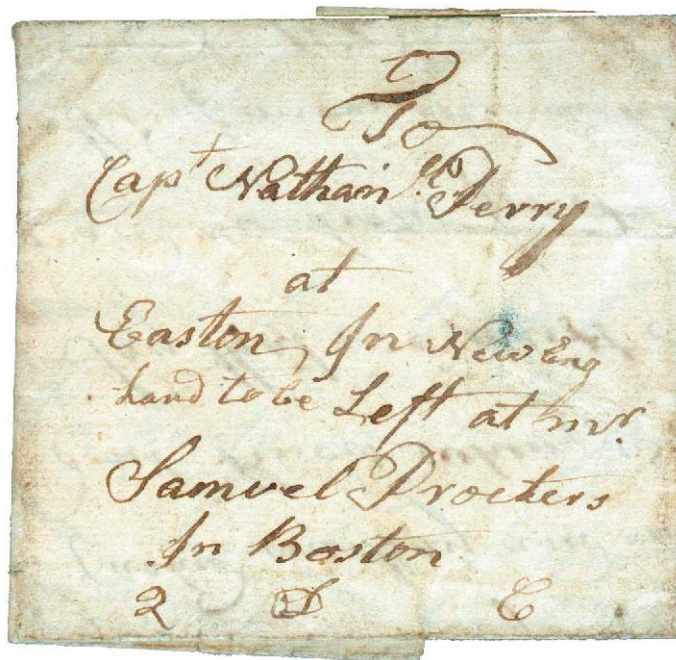 To
Capt Nathan.ll Perry
at
Easton, In New Eng
land to be Left at mr.
Samuel Procters
In Boston
2 D C